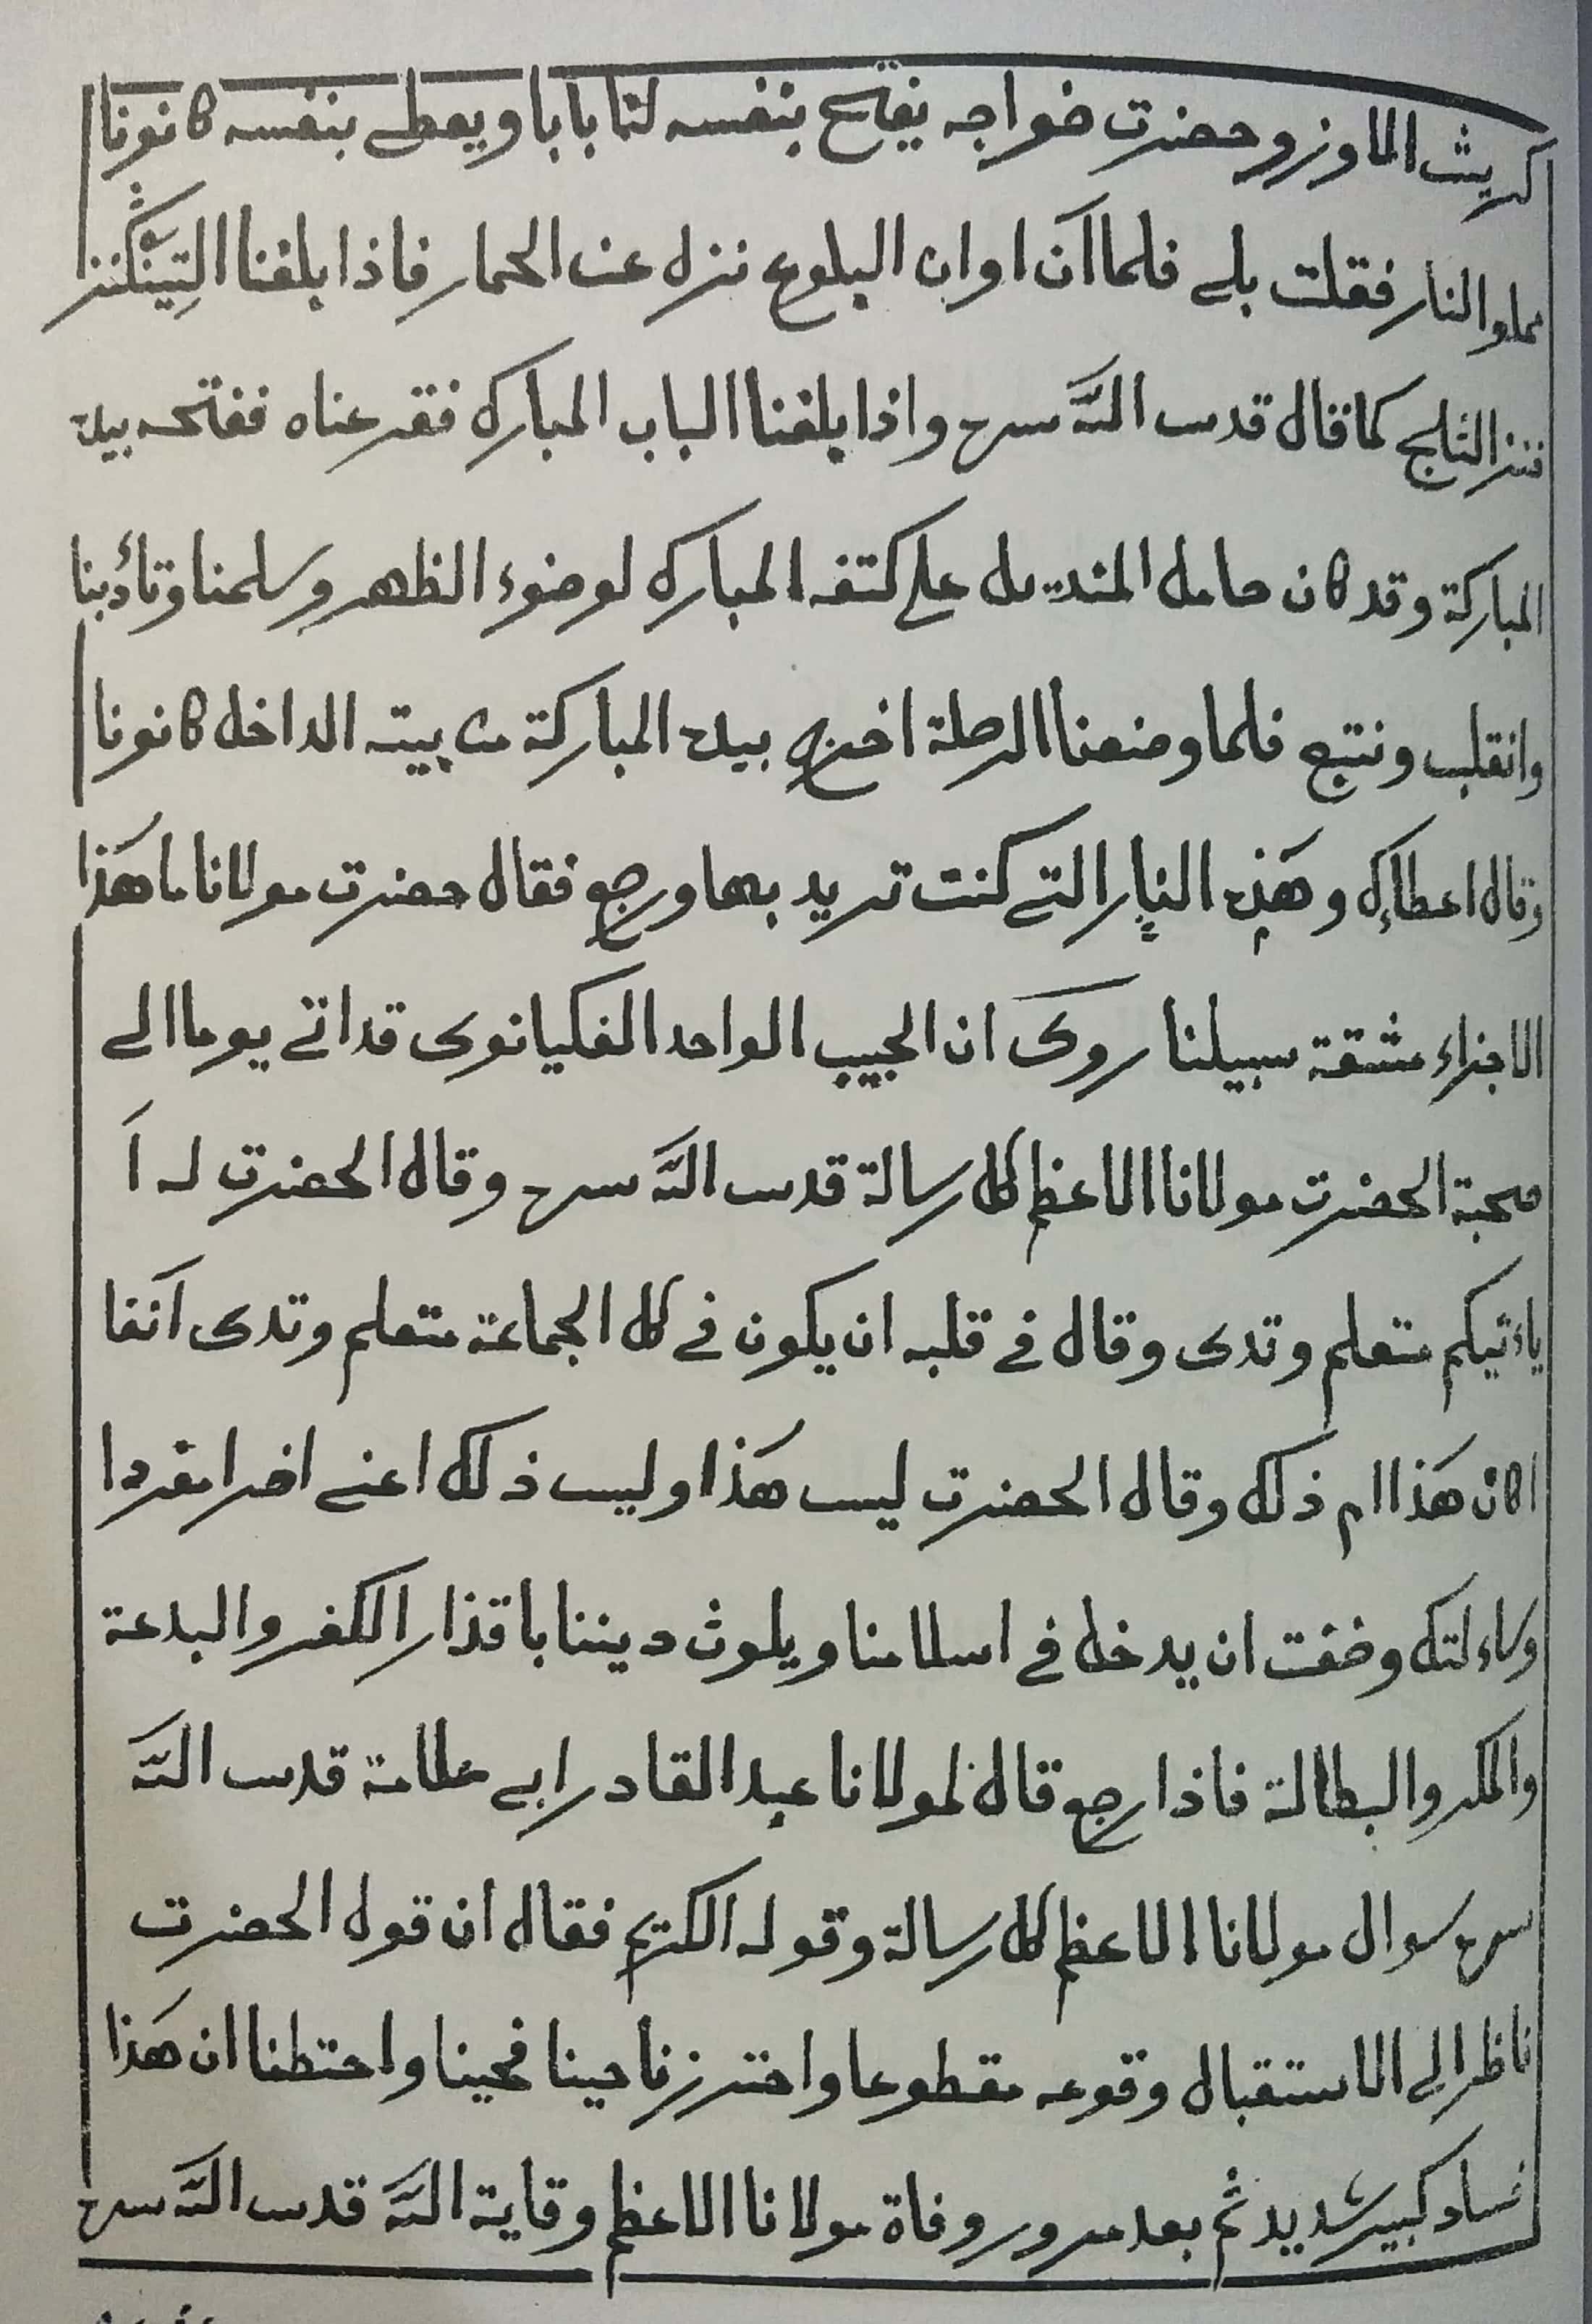 كريث الماوز وحضرت خواجه يفتح بنفسه لنا بابا ويعطے بنفسه كانونا
مملو النار فقلت بلے فلما آن اوان البلوغ نزل عن الحمار فاذا بلغنا
الثلج كما قال قدس الله سره واذا بلغنا الباب المبارك فقرعناه ففتحه بيده
المباركة وقد كان حامل المنديل علے كتفه المبارك لوضوء الظهر وسلمنا وتأدبنا
وانقلب ونتبع فلما وضعنا الرحلة اخرج بيده المباركة من بيته الداخل كانونا
وقال اعطاءك وهَذه النار التے كنت تريد بها ورجع فقال حضرت مولانا ما هَذا
الاجزاء مشقة سبيلنا روى ان الحبيب الواحد الفكيانوى قد اتے يوما الے
صحبة الحضرت مولانا الاعظم كل رسالة قدس الله سره وقال الحضرت له اَ
ياءتيكم متعلم وتدى وقال فے قلبه ان يكون فے كل الجماعة متعلم وتدى آنفا
اكان هَذا ام ذلك وقال الحضرت ليس هَذا وليس ذلك اعنے اخر امفردا
وراء لتك وخفت ان يدخل فے اسلامنا ويلوث ديننا باقذار الكفر والبدعة
والمكر والبطالة فاذا رجع قال لمولانا عبد القادر ابے علامة قدس الله
سره سوال مولانا الاعظم كل رسالة وقوله الكريم فقال ان قول الحضرت
ناظر الى الاستقبال وقوعه مقطوعا واحترزنا حينا فحينا واحتطنا ان هَذا
فساد كبير شديد ثم بعد مرور وفاة مولانا الاعظم وقاية الله قدس الله سره